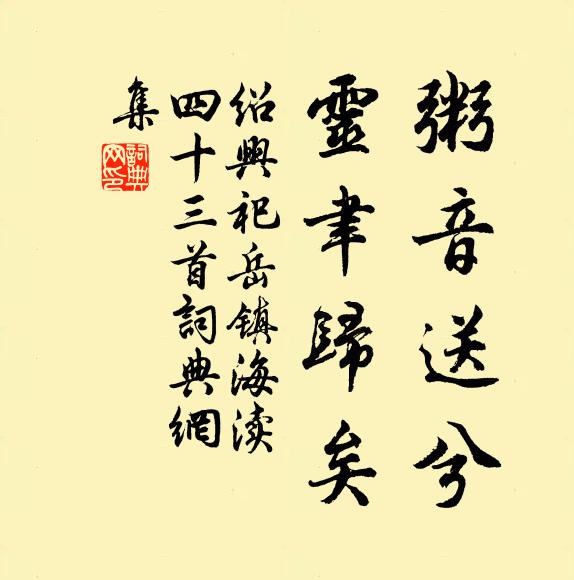 粥音送兮
靈聿歸矣
紹興祀岳鎮海渎
四十三首詞典網
集
詞典
网印